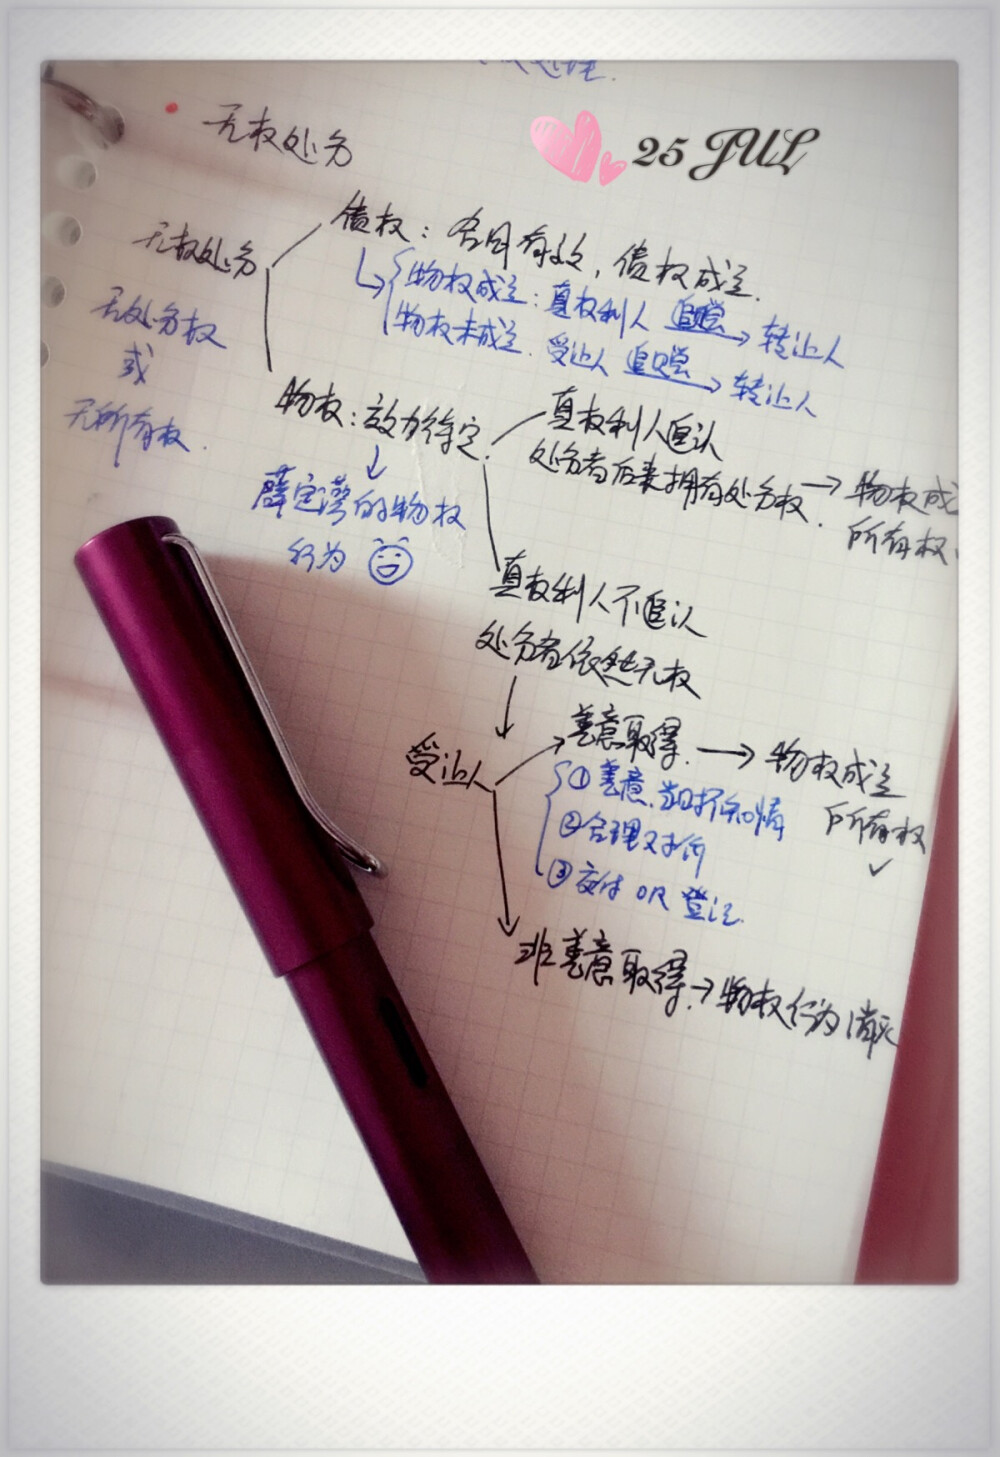 处理.
25 JUL
无权处分
无权处分
无处分权
或
无所有权.
债权：合同有效，债权成立.
物权成立：真权利人 追偿→转让人
物权未成立. 受让人 追偿→转让人
物权：效力待定.
薛定谔的物权
行为
真权利人追认
处分者后来拥有处分权. → 物权成
所有权
真权利人不追认
处分者依然无权
受让人
善意取得. → 物权成立
所有权 ✓
① 善意.当时不知情
② 合理对价
③ 交付 OR 登记.
非善意取得.→物权行为消灭